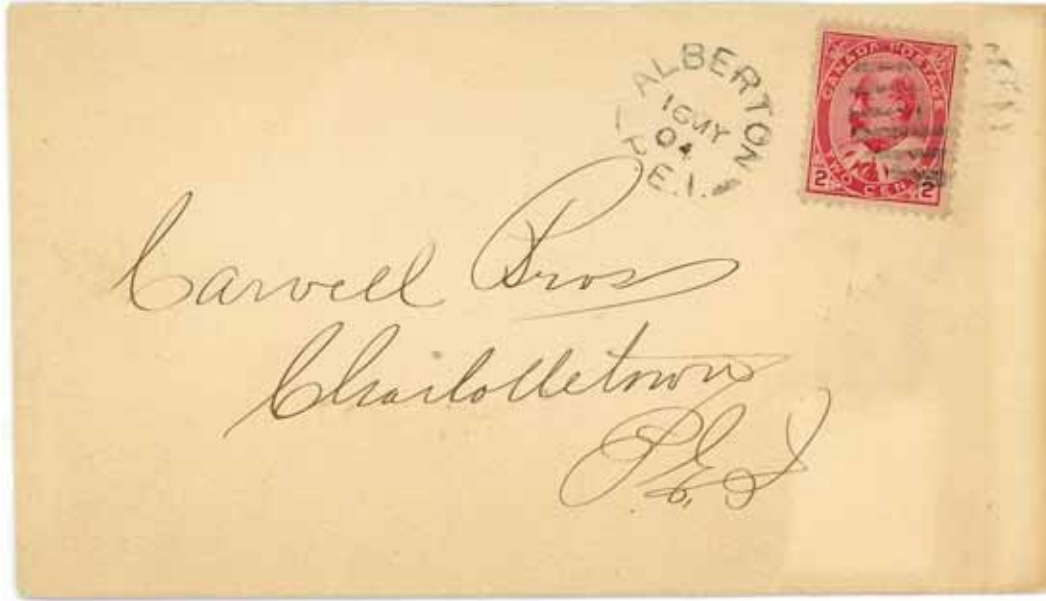 ALBERTON
16 MY
04
P.E.I.
CANADA POSTAGE
TWO CENTS
2 2
Carvell Bros
Charlottetown
P.E.I